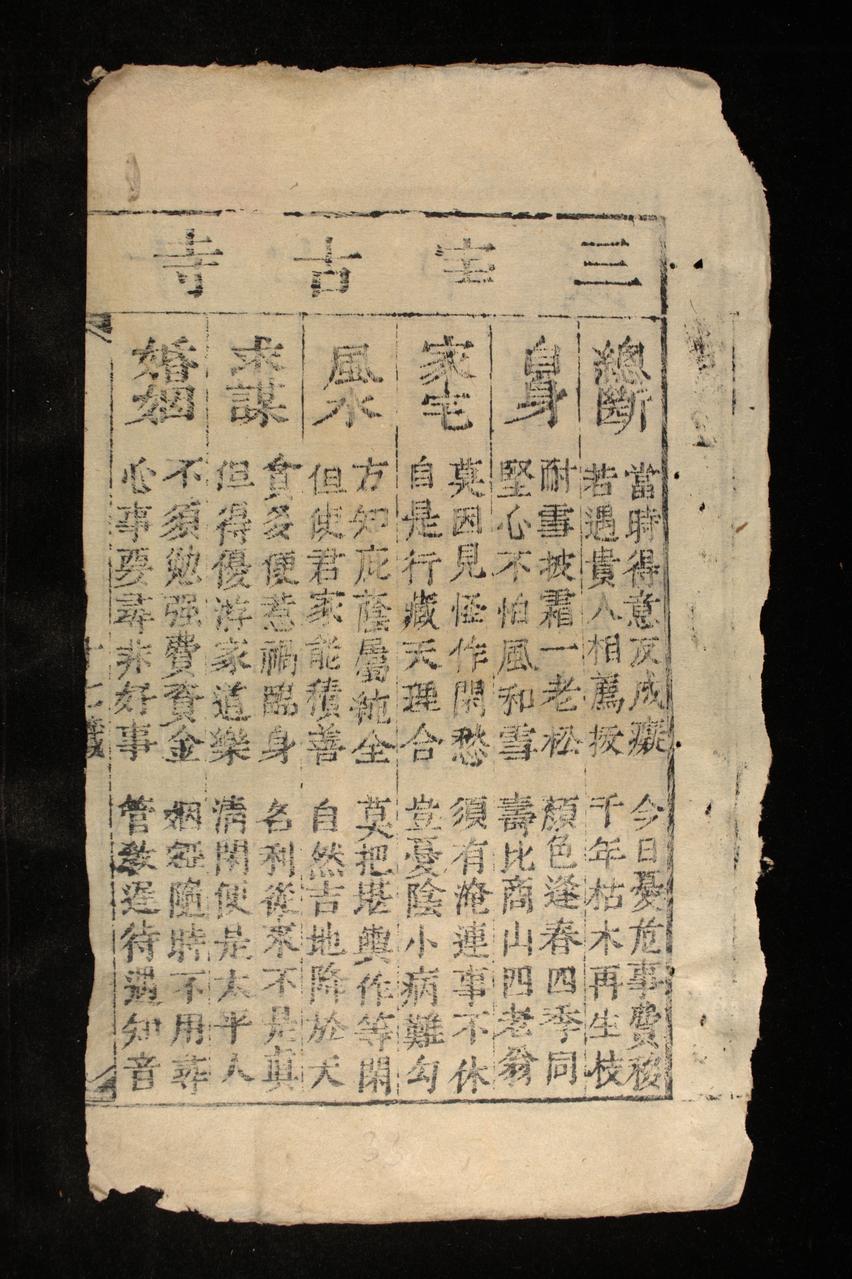 三宝古寺
總斷
當時得意反成癡 今日憂危事費移
若遇貴人相薦拔 千年枯木再生枝
自身
耐雪披霜一老松 顏色逢春四季同
堅心不怕風和雪 壽比商山四老翁
家宅
莫因見怪作閑愁 須有淹連事不休
自是行藏天理合 豈憂陰小病難勾
風水
方知庇蔭屬純全 莫把堪輿作等閑
但使君家能積善 自然吉地降於天
求謀
貪多便惹禍臨身 名利從來不是真
但得優游家道樂 清閑便是太平人
婚姻
不須勉强費資金 姻緣隨時不用尋
心事要尋非好事 管教遲待遇知音
十七籤
33